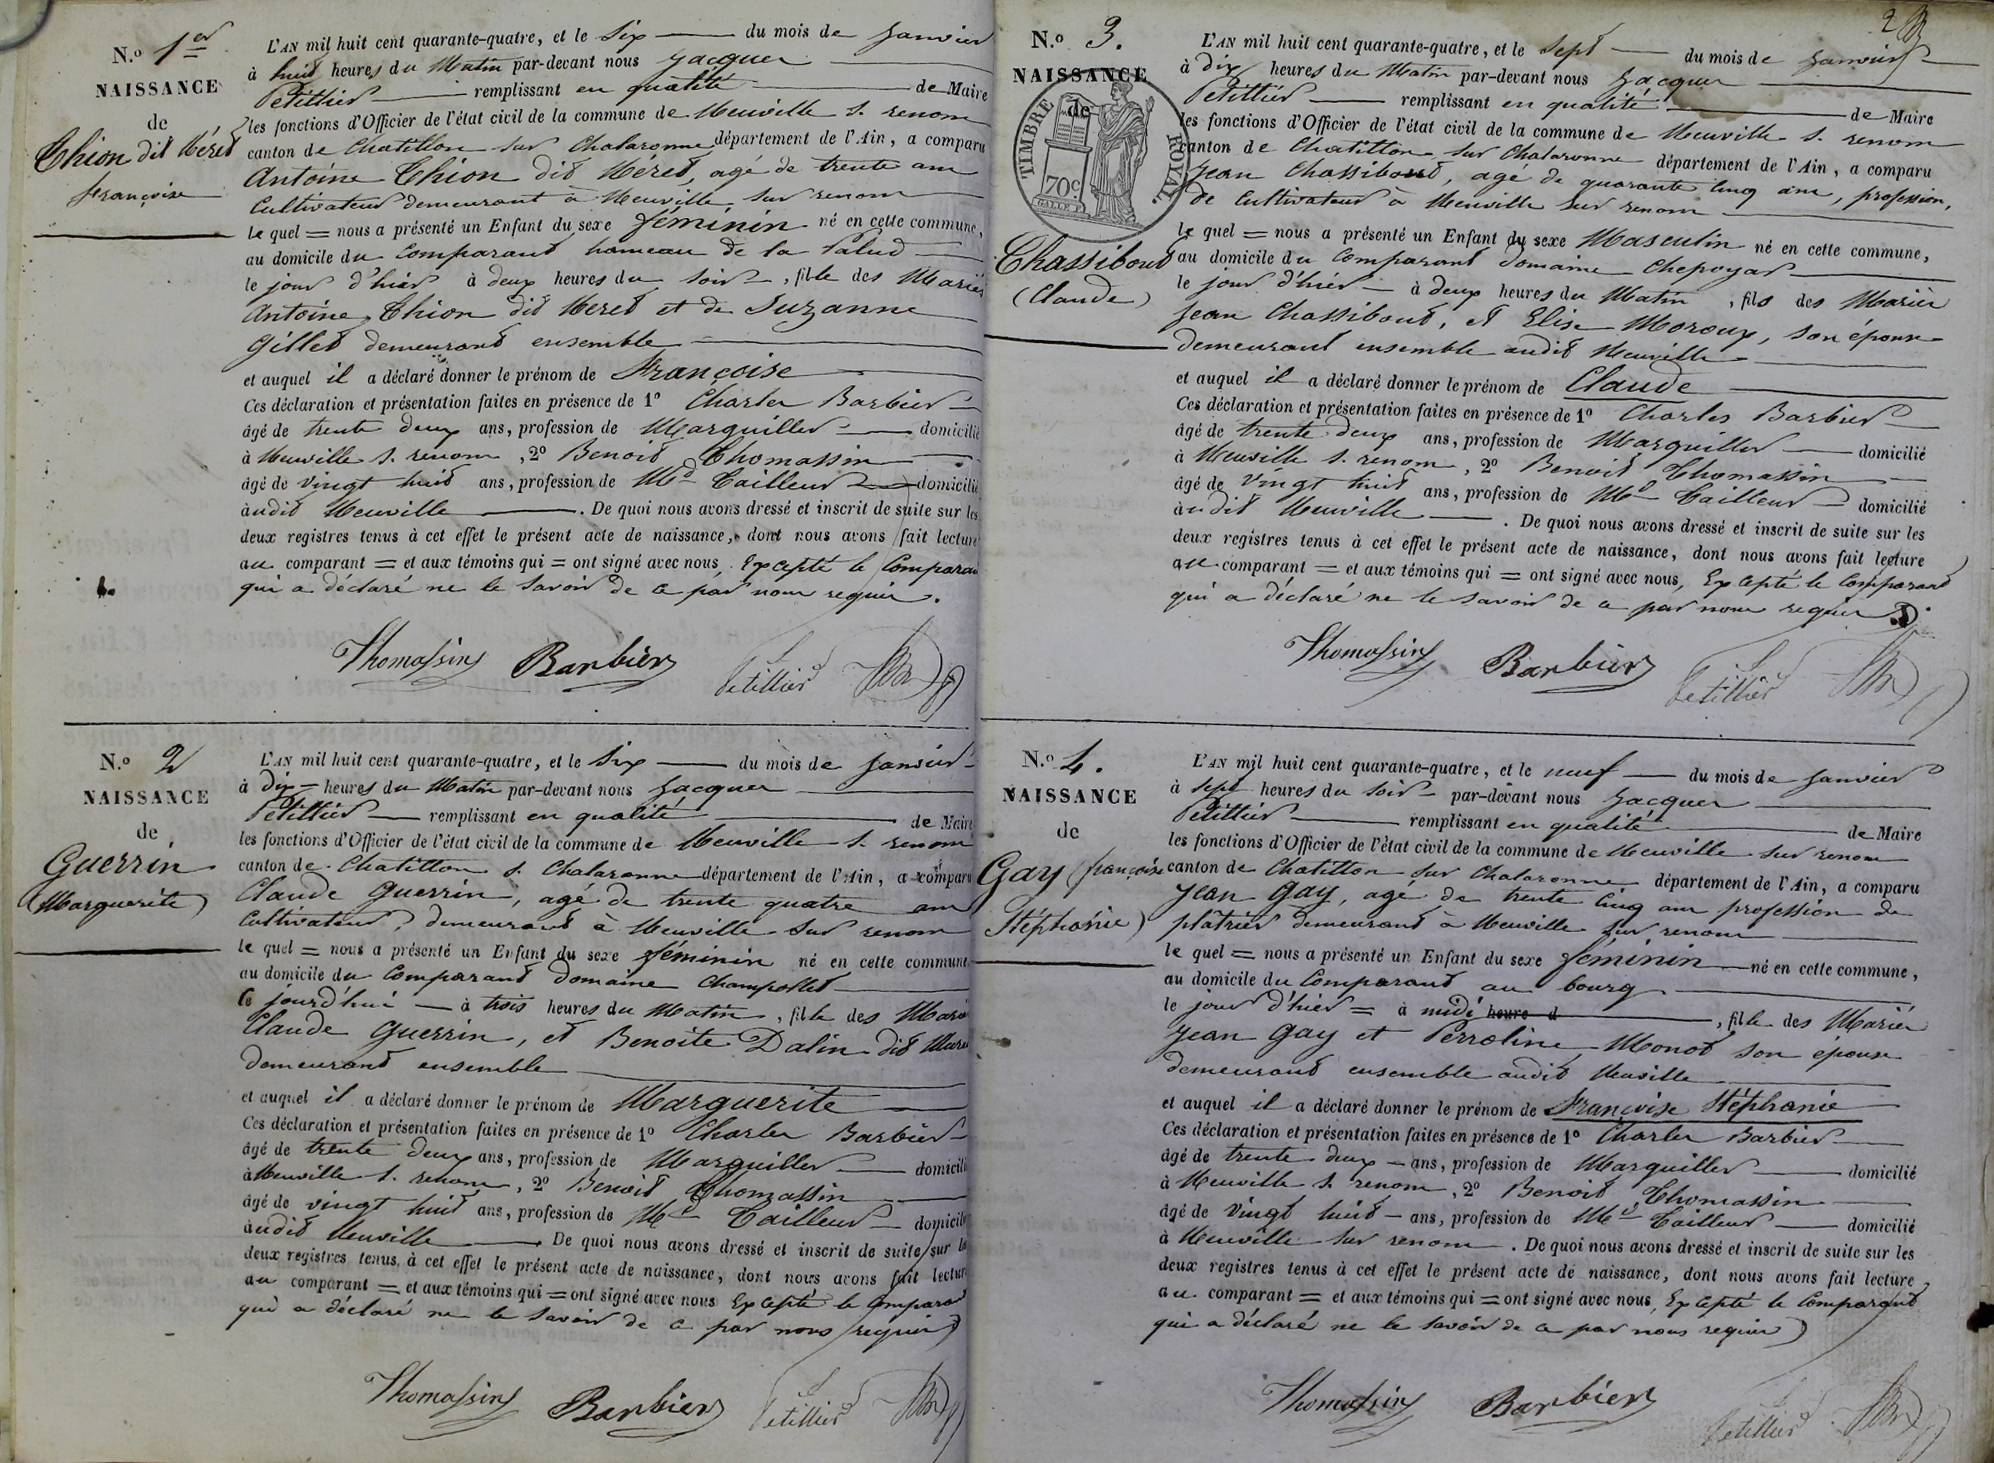 N.o 1er
NAISSANCE
de
Thion dit Véret
Françoise
L'AN mil huit cent quarante-quatre, et le six du mois de janvier
à huit heures du Matin par-devant nous Jacques
Petillier remplissant en qualité de Maire
les fonctions d'Officier de l'état civil de la commune de Neuville s. renom
canton de Chatillon sur Chalaronne département de l'Ain, a comparu
Antoine Thion dit Véret, agé de trente ans
Cultivateur demeurant à Neuville sur renom
le quel = nous a présenté un Enfant du sexe féminin né en cette commune,
au domicile du Comparant hameau de la Palud
le jour d'hier à deux heures du soir, fille des Mariés
Antoine Thion dit Veret et de Suzanne
Gillet demeurant ensemble
et auquel il a déclaré donner le prénom de Françoise
Ces déclaration et présentation faites en présence de 1º Charles Barbier
âgé de trente deux ans, profession de Marguiller domicilié
à Neuville s. renom, 2º Benoit Thomassin
âgé de vingt huit ans, profession de Md Tailleur domicilié
audit Neuville. De quoi nous avons dressé et inscrit de suite sur les
deux registres tenus à cet effet le présent acte de naissance, dont nous avons fait lecture
au comparant = et aux témoins qui = ont signé avec nous Excepté le Comparant
qui a déclaré ne le savoir de ce par nous requis.
Thomassin Barbier Petillier
N.o 2
NAISSANCE
de
Guerrin
(Marguerite)
L'AN mil huit cent quarante-quatre, et le six du mois de janvier
à dix heures du Matin par-devant nous Jacques
Petillier remplissant en qualité de Maire
les fonctions d'Officier de l'état civil de la commune de Neuville s. renom
canton de Chatillon s. Chalaronne département de l'Ain, a comparu
Claude Guerrin, agé de trente quatre ans
Cultivateur, demeurant à Neuville sur renom
le quel = nous a présenté un Enfant du sexe féminin né en cette commune
au domicile du Comparant domaine Champollet
ce jourd'hui à trois heures du Matin, fille des Mariés
Claude Guerrin, et Benoite Dalin dit
demeurant ensemble
et auquel il a déclaré donner le prénom de Marguerite
Ces déclaration et présentation faites en présence de 1º Charles Barbier
âgé de trente deux ans, profession de Marguiller domicilié
à Neuville s. renom, 2º Benoit Thomassin
âgé de vingt huit ans, profession de Md Tailleur domicilié
audit Neuville De quoi nous avons dressé et inscrit de suite sur les
deux registres tenus à cet effet le présent acte de naissance, dont nous avons fait lecture
au comparant = et aux témoins qui = ont signé avec nous Excepté le Comparant
qui a déclaré ne le savoir de ce par nous requis
Thomassin Barbier Petillier
2
N.o 3.
NAISSANCE
de
TIMBRE ROYAL
70c
Chassibout
(Claude)
L'AN mil huit cent quarante-quatre, et le sept du mois de janvier
à dix heures du Matin par-devant nous Jacques
Petillier remplissant en qualité de Maire
les fonctions d'Officier de l'état civil de la commune de Neuville s. renom
canton de Chatillon sur Chalaronne département de l'Ain, a comparu
Jean Chassibout, agé de quarante cinq ans, profession,
de Cultivateur à Neuville sur renom
le quel = nous a présenté un Enfant du sexe Masculin né en cette commune,
au domicile du Comparant domaine Chepoyar
le jour d'hier à deux heures du Matin, fils des Mariés
Jean Chassibout, et Elise Moroux, son épouse
demeurant ensemble audit Neuville
et auquel il a déclaré donner le prénom de Claude
Ces déclaration et présentation faites en présence de 1º Charles Barbier
âgé de trente deux ans, profession de Marguiller domicilié
à Neuville s. renom, 2º Benoit Thomassin
âgé de vingt huit ans, profession de Md Tailleur domicilié
audit Neuville. De quoi nous avons dressé et inscrit de suite sur les
deux registres tenus à cet effet le présent acte de naissance, dont nous avons fait lecture
au comparant = et aux témoins qui = ont signé avec nous, Excepté le Comparant
qui a déclaré ne le savoir de ce par nous requis
Thomassin Barbier Petillier
N.o 4.
NAISSANCE
de
Gay (françoise
Stéphanie)
L'AN mil huit cent quarante-quatre, et le neuf du mois de janvier
à sept heures du soir par-devant nous Jacques
Petillier remplissant en qualité de Maire
les fonctions d'Officier de l'état civil de la commune de Neuville sur renom
canton de Chatillon sur Chalaronne département de l'Ain, a comparu
Jean Gay, agé de trente cinq ans profession de
plâtrier demeurant à Neuville sur renom
le quel = nous a présenté un Enfant du sexe féminin né en cette commune,
au domicile du Comparant au bourg
le jour d'hier = à midi heure d, fille des Mariés
Jean Gay et Perroline Monot son épouse
demeurant ensemble audit Neuville
et auquel il a déclaré donner le prénom de Françoise Stéphanie
Ces déclaration et présentation faites en présence de 1º Charles Barbier
âgé de trente deux ans, profession de Marguiller domicilié
à Neuville s. renom, 2º Benoit Thomassin
âgé de vingt huit ans, profession de Md Tailleur domicilié
à Neuville sur renom. De quoi nous avons dressé et inscrit de suite sur les
deux registres tenus à cet effet le présent acte de naissance, dont nous avons fait lecture
au comparant = et aux témoins qui = ont signé avec nous, Excepté le Comparant
qui a déclaré ne le savoir de ce par nous requis
Thomassin Barbier Petillier